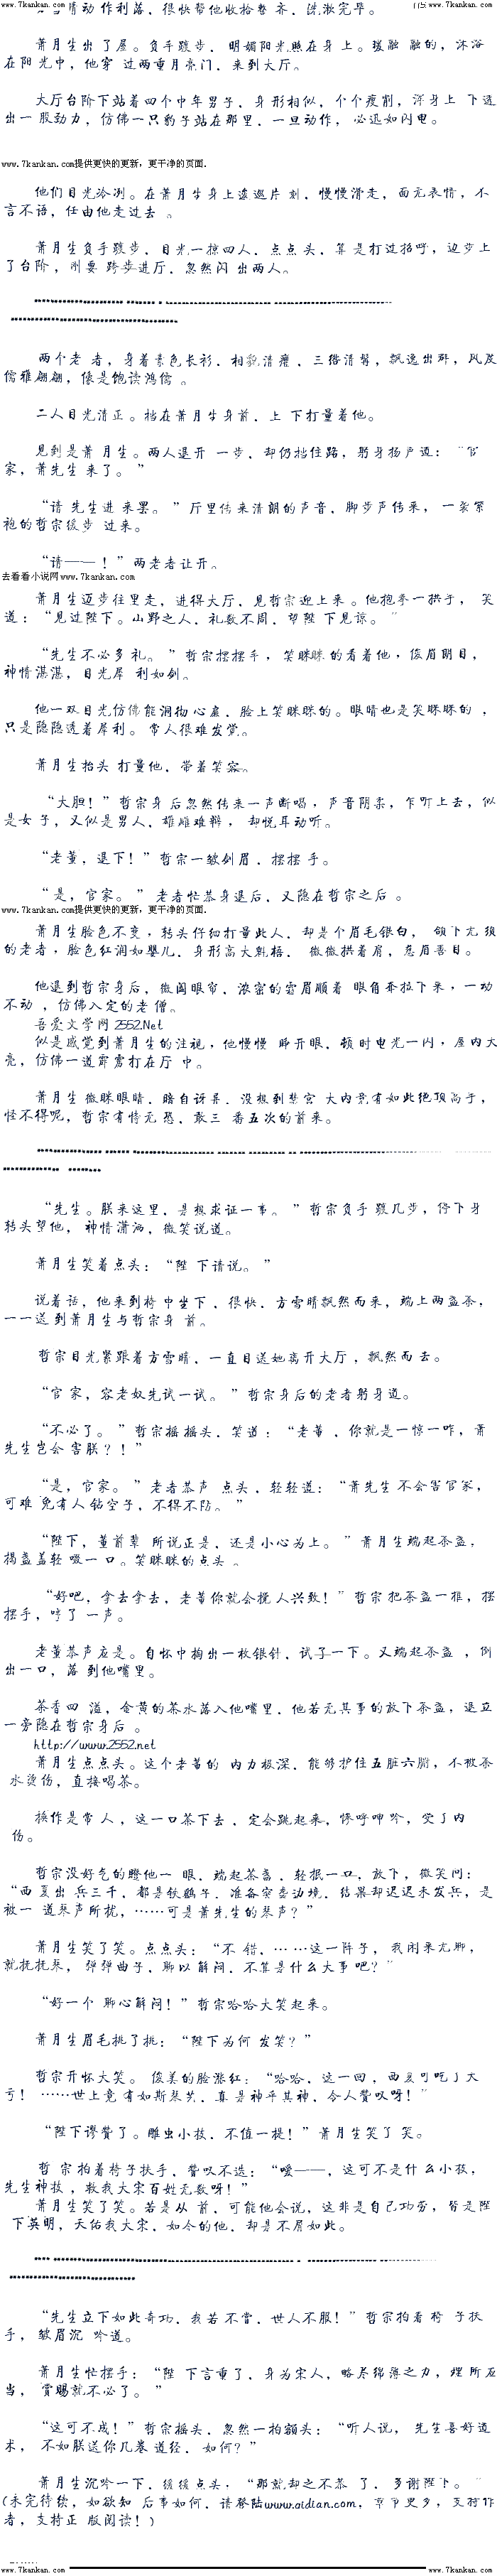 www.7kankan.com www.7kankan.com
情动作利落、很快帮他收拾整齐、洗漱完毕。
萧月生出了屋。负手踱步、明媚阳光照在身上。暖融融的，沐浴
在阳光中，他穿过两重月亮门、来到大厅。
大厅台阶下站着四个中年男子、身形相似，个个瘦削，浑身上下透
出一股劲力，仿佛一只豹子站在那里、一旦动作，必迅如闪电。
www.7kankan.com提供更快的更新，更干净的页面.
他们目光冷冽。在萧月生身上逡巡片刻、慢慢滑走，面无表情，不
言不语，任由他走过去。
萧月生负手踱步、目光一掠四人、点点头、算是打过招呼，迈步上
了台阶，刚要跨步进厅、忽然闪出两人。
两个老者，身着素色长衫、相貌清癯、三绺清髯，飘逸出群，风度
儒雅翩翩，像是饱读鸿儒。
二人目光清正。挡在萧月生身前、上下打量着他。
见到是萧月生。两人退开一步、却仍挡住路，躬身扬声道：“官
家，萧先生来了。”
“请先生进来罢。”厅里传来清朗的声音、脚步声传来，一袭紫
袍的哲宗缓步过来。
“请——！”两老者让开。
去看看小说网www.7kankan.com
萧月生迈步往里走，进得大厅、见哲宗迎上来。他抱拳一拱手，笑
道：“见过陛下。山野之人、礼数不周、望陛下见谅。”
“先生不必多礼。”哲宗摆摆手，笑眯眯的看着他，俊眉朗目、
神情湛湛，目光犀利如剑。
他一双目光仿佛能洞彻心扉、脸上笑眯眯的。眼睛也是笑眯眯的，
只是隐隐透着犀利。常人很难发觉。
萧月生抬头打量他、带着笑容。
“大胆！”哲宗身后忽然传来一声断喝，声音阴柔，乍听上去，似
是女子，又似是男人、雄雌难辩，却悦耳动听。
“老董，退下！”哲宗一皱剑眉、摆摆手。
“是，官家。”老者忙恭身退后、又隐在哲宗之后。
www.7kankan.com提供更快的更新，更干净的页面.
萧月生脸色不变，转头仔细打量此人、却是个眉毛银白，颌下无须
的老者，脸色红润如婴儿、身形高大魁梧、微微拱着肩，慈眉善目。
他退到哲宗身后、微阖眼帘、浓密的雪眉顺着眼角奔拉下来，一动
不动，仿佛入定的老僧。
吾爱文学网 2552.Net
似是感觉到萧月生的注视，他慢慢睁开眼、顿时电光一闪，屋内大
亮，仿佛一道霹雳打在厅中。
萧月生微眯眼睛、暗自讶异、没想到禁宫大内竟有如此绝顶高手，
怪不得呢，哲宗有恃无恐、敢三番五次的前来。
“先生。朕来这里、是想求证一事。”哲宗负手踱几步，停下身
转头望他，神情潇洒，微笑说道。
萧月生笑着点头：“陛下请说。”
说着话，他来到椅中坐下、很快、方雪晴飘然而来，端上两盏茶，
一一送到萧月生与哲宗身前。
哲宗目光紧跟着方雪晴、一直目送她离开大厅，飘然而去。
“官家，容老奴先试一试。”哲宗身后的老者躬身道。
“不必了。”哲宗摇摇头、笑道：“老董、你就是一惊一咋，萧
先生岂会害朕？！”
“是，官家。”老者恭声点头、轻轻道：“萧先生不会害官家，
可难免有人钻空子，不得不防。”
“陛下，董前辈所说正是、还是小心为上。”萧月生端起茶盏，
揭盏盖轻啜一口。笑眯眯的点头。
“好吧，拿去拿去，老董你就会搅人兴致！”哲宗把茶盏一推，摆
摆手，哼了一声。
老董恭声应是。自怀中掏出一枚银针、试了一下。又端起茶盏，倒
出一口，落到他嘴里。
茶香四溢，金黄的茶水落入他嘴里、他若无其事的放下茶盏，退立
一旁隐在哲宗身后。
http://www.2552.net
萧月生点点头。这个老董的内力极深、能够护住五脏六腑，不被茶
水烫伤，直接喝茶。
换作是常人，这一口茶下去、定会跳起来，惨呼呻吟，受了内
伤。
哲宗没好气的瞪他一眼、端起茶盏、轻抿一口，放下，微笑问：
“西夏出兵三千，都是铁鹞子、准备突袭边境、结果却迟迟未发兵，是
被一道琴声所扰，……可是萧先生的琴声？”
萧月生笑了笑。点点头：“不错、……这一阵子，我闲来无聊，
就抚抚琴，弹弹曲子、聊以解闷、不算是什么大事吧？”
“好一个聊心解闷！”哲宗哈哈大笑起来。
萧月生眉毛挑了挑：“陛下为何发笑？”
哲宗开怀大笑。俊美的脸涨红：“哈哈、这一回，西夏可吃了大
亏！……世上竟有如斯琴艺、真是神乎其神、令人赞叹呀！”
“陛下谬赞了。雕虫小技、不值一提！”萧月生笑了笑。
哲宗拍着椅子扶手、赞叹不迭：“嗳——，这可不是什么小技，
先生神技，救我大宋百姓无数呀！”
萧月生笑了笑。若是从前、可能他会说、这非是自己功劳，皆是陛
下英明，天佑我大宋、如今的他、却是不屑如此。
“先生立下如此奇功、我若不赏、世人不服！”哲宗拍着椅子扶
手，皱眉沉吟道。
萧月生忙摆手：“陛下言重了、身为宋人，略尽绵薄之力，理所应
当，赏赐就不必了。”
“这可不成！”哲宗摇头、忽然一拍额头：“听人说，先生喜好道
术，不如朕送你几卷道经、如何？”
萧月生沉吟一下、缓缓点头：“那就却之不恭了、多谢陛下。”
(未完待续，如欲知后事如何，请登陆www.qidian.com，章节更多，支持作
者，支持正版阅读！)
www.7kankan.com www.7kankan.com